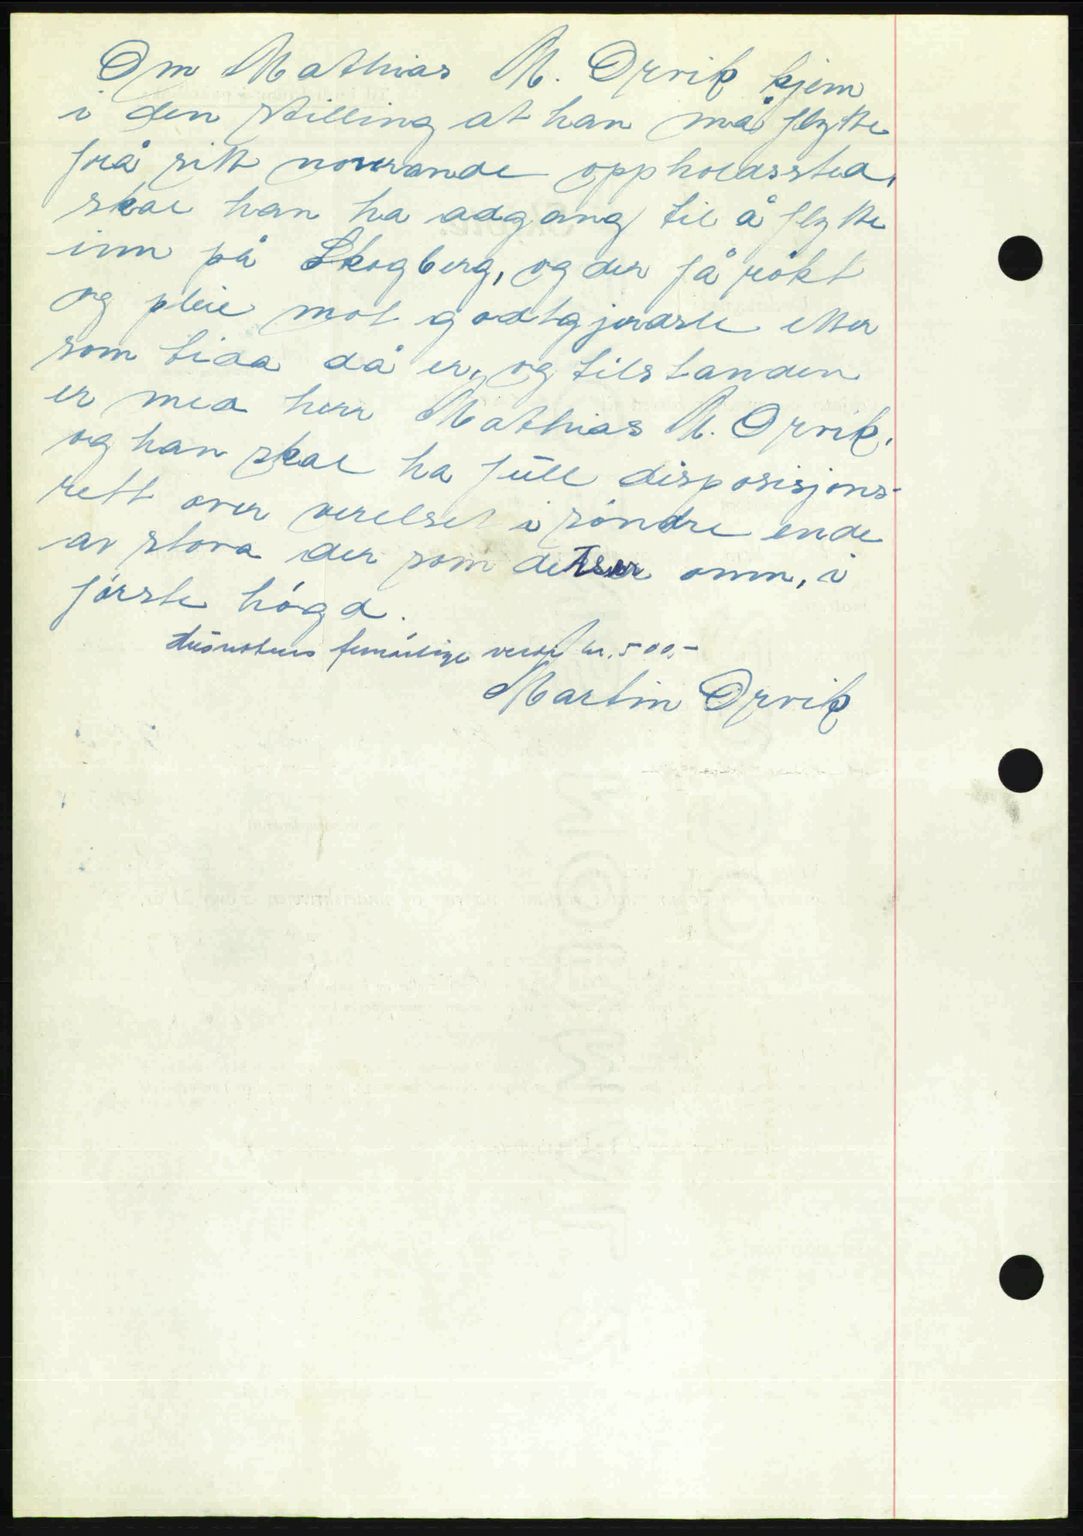 Om Mathias M. Orvik kjem
i den stilling at han må flytte
frå sitt noverande oppholdssted,
skal han ha adgang til å flytte
inn på Skogberg, og der få rökt
og pleie mot godtgjerdsle etter
som tida då er, og tilstanden
er med herr Mathias M. Orvik,
og han skal ha full disposisjons-
rett over verelset i söndre ende
av stova der som det er omn, i
förste högd.
femårlige verdi kr. 500,-
Martin Orvik